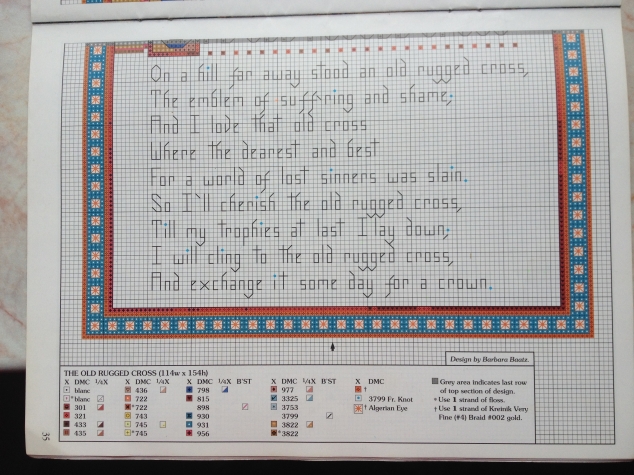 On a hill far away stood an old rugged cross,
The emblem of suffring and shame;
And I love that old cross
Where the dearest and best
For a world of lost sinners was slain.
So I'll cherish the old rugged cross,
Till my trophies at last I lay down;
I will cling to the old rugged cross,
And exchange it some day for a crown.
Design by Barbara Baatz.
THE OLD RUGGED CROSS (114w x 154h)
X DMC 1/4X X DMC 1/4X X DMC 1/4X B'ST X DMC 1/4X B'ST X DMC
blanc 436 798 977 †
*blanc 722 815 3325 3799 Fr. Knot
301 *722 898 3753 † Algerian Eye
321 743 930 3799
433 745 931 3822
435 *745 956 *3822
Grey area indicates last row
of top section of design.
* Use 1 strand of floss.
† Use 1 strand of Kreinik Very
Fine (#4) Braid #002 gold.
35